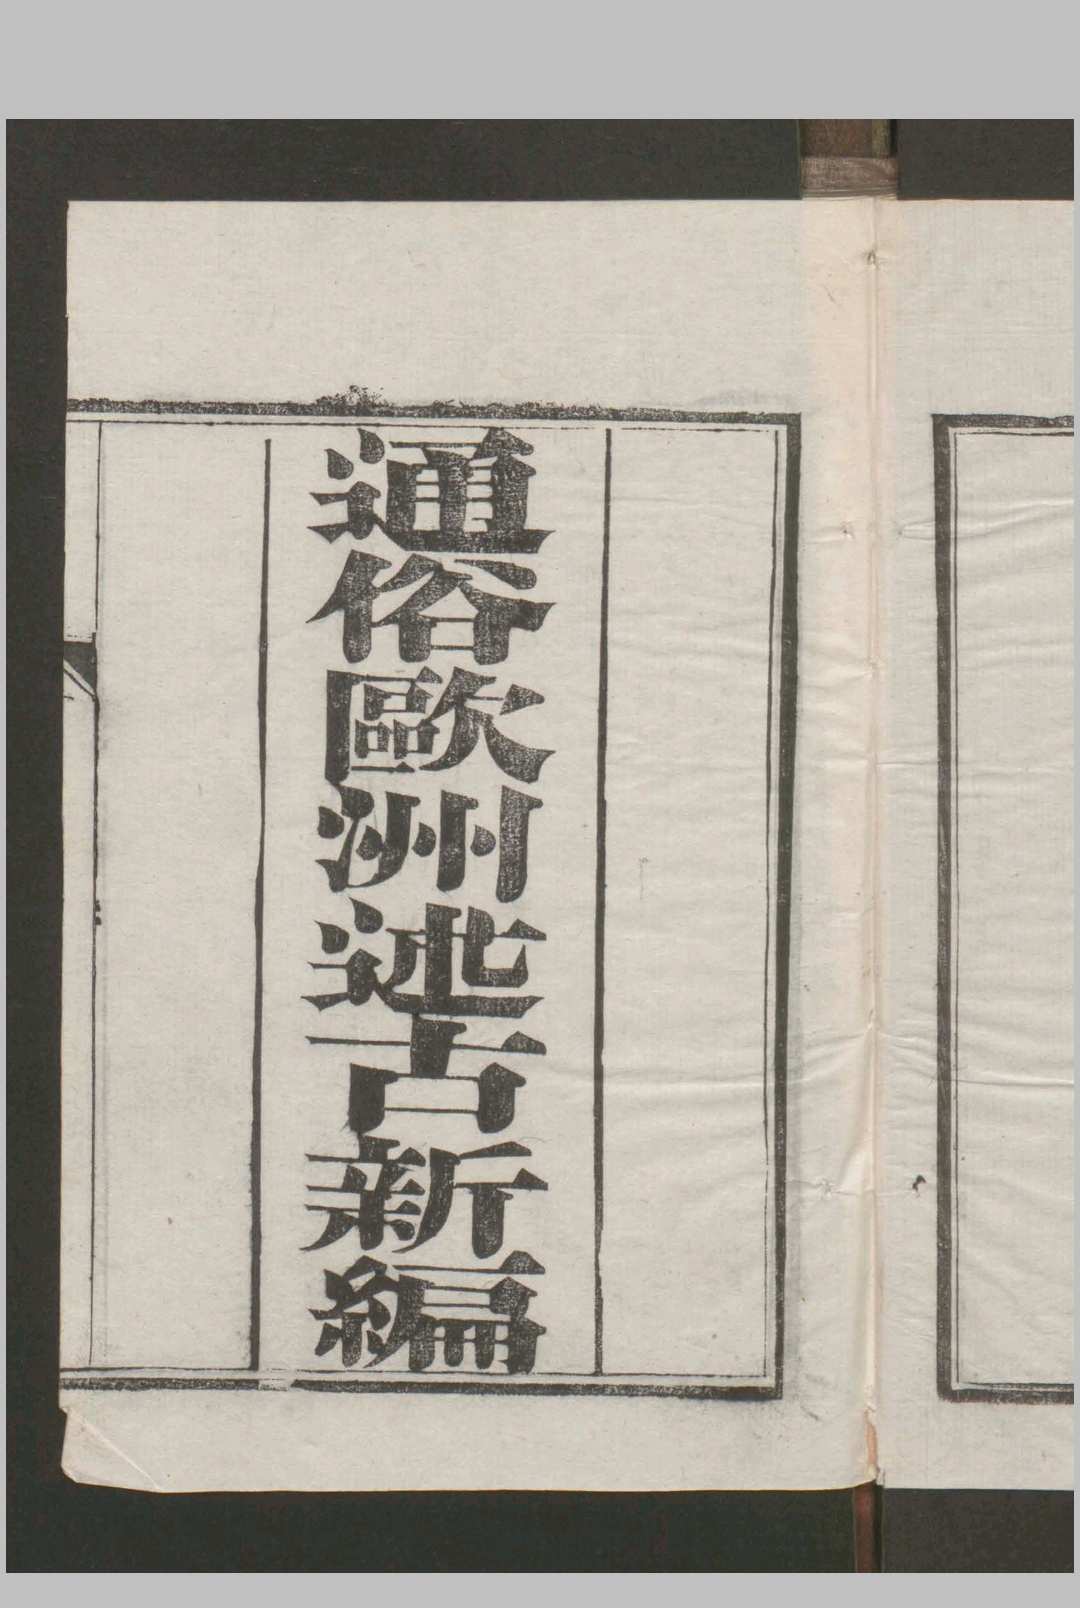 通俗歐洲述古新編